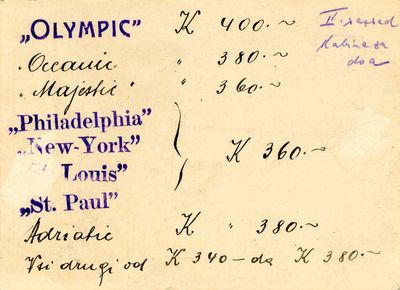 „OLYMPIC" K 400.~
„Oceanic " 380.~
„Majestic" " 360.~
„Philadelphia"
„New-York"
St. Louis"
„St. Paul"
K 360.~
Adriatic K " 380.~
Vsi drugi od K 340 – do K 380.~
II. razred
Kabine za
dva